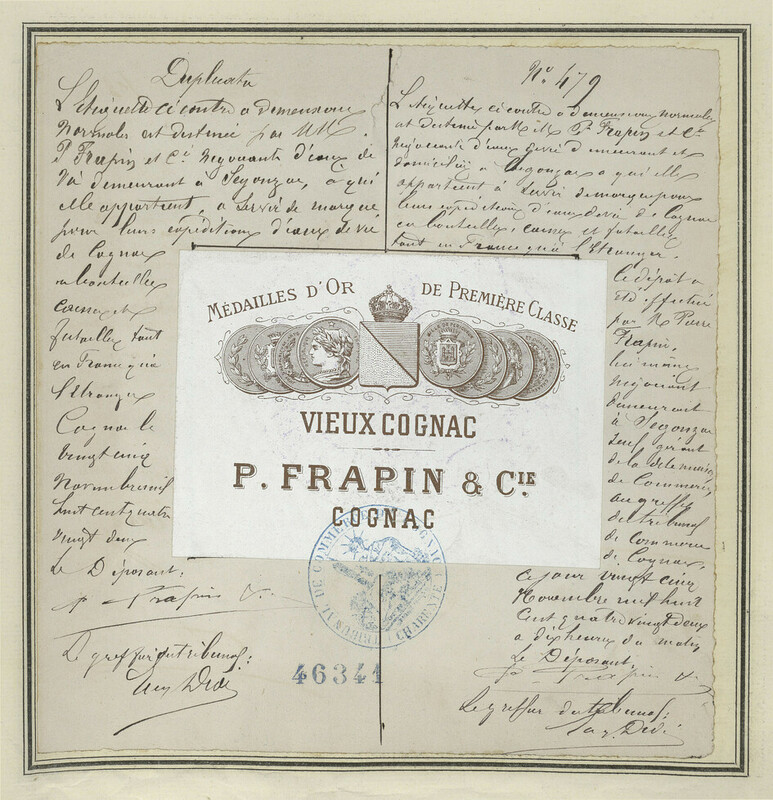 Duplicata
L'Etiquette ci contre a dimensions
Normales est destinée par MM.
P Frapin et Cie Négociants d'eaux de
Vie demeurant à Segonzac, à qui
elle appartient, à servir de marque
pour leurs expéditions d'eaux de vie
de Cognac
en bouteilles
caisses et
futailles tant
en France qu'à
l'Etranger
Cognac le
vingt cinq
Novembre mil
huit cent quatre
vingt deux
Le Déposant:
p Frapin &.
Le greffier du tribunal:
No 479
L'Etiquette ci contre a dimensions normales
est destinée par M. P. Frapin et Cie
négociants d'eaux de vie demeurant et
domiciliés à Segonzac à qui elle
appartient à servir de marque pour
leurs expéditions d'eaux de vie de Cognac
en bouteilles, caisses et futailles
tant en France qu'à l'Etranger.
Le dépôt a
été effectué
par M Pierre
Frapin,
lui même
négociant
demeurant
à Segonzac
seul gérant
de la dite maison
de Commerce,
au greffe
du tribunal
de commerce
de Cognac,
ce jour vingt cinq
Novembre mil huit
cent quatre vingt deux
a dix heures du matin
Le Déposant:
p Frapin &.
Le greffier du tribunal:
MÉDAILLES D'OR DE PREMIÈRE CLASSE
VIEUX COGNAC
P. FRAPIN & CIE
COGNAC
TRIBUNAL DE COMMERCE COGNAC CHARENTE
46341